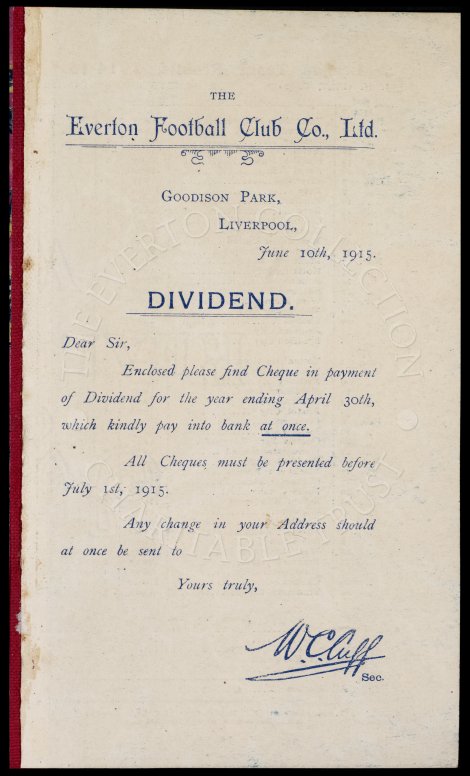 THE
Everton Football Club Co., Ltd.
GOODISON PARK,
LIVERPOOL,
June 10th, 1915.
DIVIDEND.
Dear Sir,
Enclosed please find Cheque in payment
of Dividend for the year ending April 30th,
which kindly pay into bank at once.
All Cheques must be presented before
July 1st, 1915.
Any change in your Address should
at once be sent to
Yours truly,
W.C.Cuff
Sec.
THE EVERTON COLLECTION
CHARITABLE TRUST